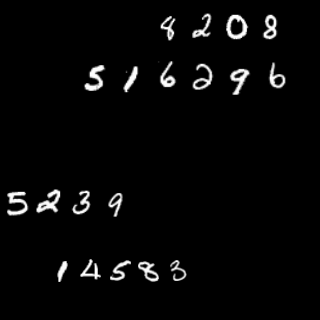 8208
516296
5239
14583